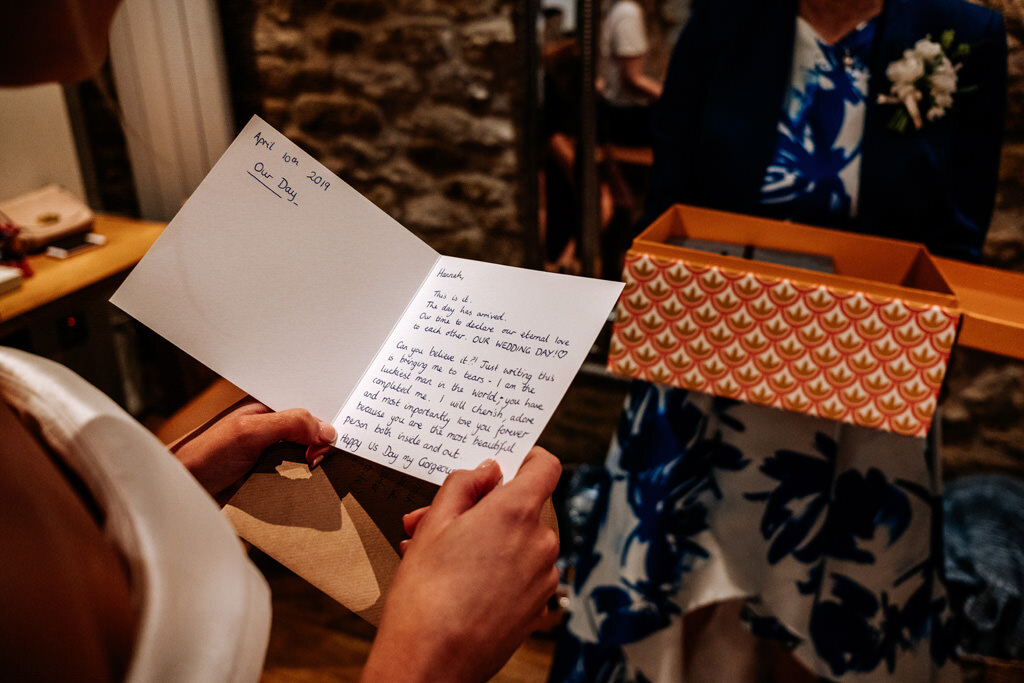 April 10th 2019
Our Day
Hannah,
This is it.
The day has arrived.
Our time to declare our eternal love
to each other. OUR WEDDING DAY!♡
Can you believe it?! Just writing this
is bringing me to tears - I am the
luckiest man in the world; you have
completed me. I will cherish, adore
and most importantly, love you forever
because you are the most beautiful
person both inside and out.
Happy Us Day my